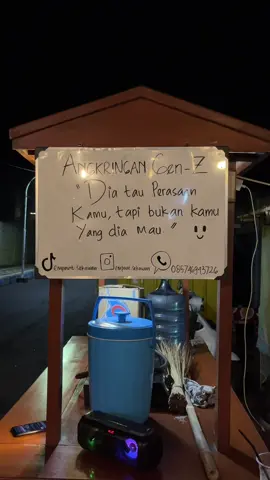 ANGKRINGAN Gen-Z
" Dia tau Perasaan
Kamu, tapi bukan kamu
Yang dia mau "
085746993726